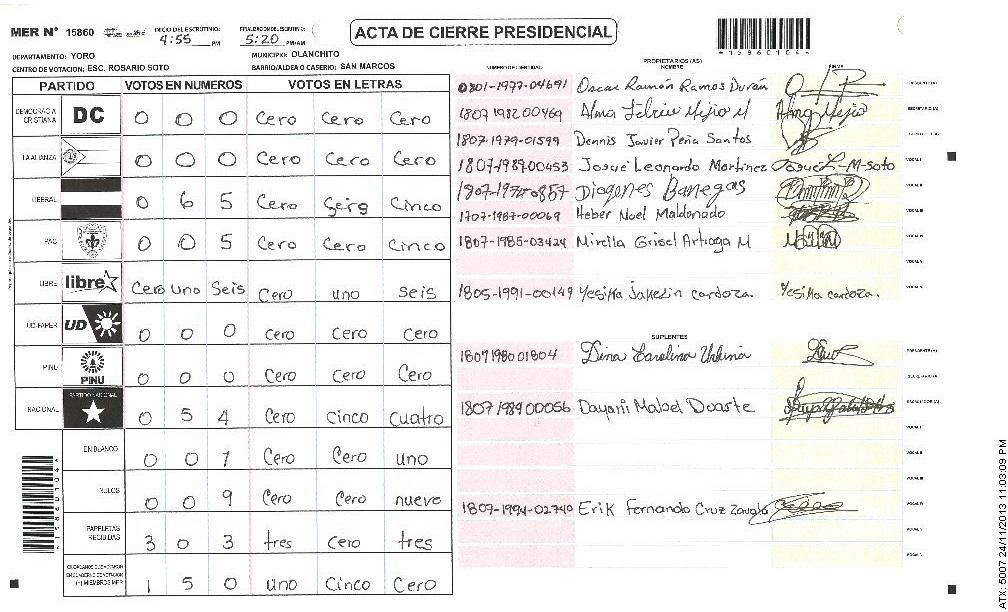 MER N° 15860 INICIO DEL ESCRUTINIO: 4:55 PM FINALIZACION DEL ESCRUTINIO: 5:20 PM/AM
ACTA DE CIERRE PRESIDENCIAL
*15860104*
DEPARTAMENTO: YORO MUNICIPIO: OLANCHITO
CENTRO DE VOTACION: ESC. ROSARIO SOTO BARRIO/ALDEA O CASERIO: SAN MARCOS
PARTIDO VOTOS EN NUMEROS VOTOS EN LETRAS
DEMOCRACIA CRISTIANA DC 0 0 0 Cero Cero Cero
LA ALIANZA 0 0 0 Cero Cero Cero
LIBERAL 0 6 5 Cero Seis Cinco
PAC 0 0 5 Cero Cero Cinco
LIBRE libre Cero uno Seis Cero uno seis
UD-FAPER UD 0 0 0 Cero Cero Cero
PINU PINU 0 0 0 Cero Cero Cero
NACIONAL PARTIDO NACIONAL 0 5 4 Cero Cinco Cuatro
EN BLANCO 0 0 1 Cero Cero uno
NULOS 0 0 9 Cero Cero nueve
PAPELETAS RECIBIDAS 3 0 3 tres Cero tres
CIUDADANOS QUE VOTARON EN CUADERNO DE VOTACION (+) MIEMBROS MER 1 5 0 uno Cinco Cero
PROPIETARIOS (AS)
NUMERO DE IDENTIDAD NOMBRE FIRMA
0801-1977-04691 Oscar Ramón Ramos Durán PRESIDENTE(A)
1807198200469 Alma Leticia Mejia M Alma Mejia SECRETARIO(A)
1807-1979-01599 Dennis Javier Peña Santos ESCRUTADOR
1807-1989-00453 Josué Leonardo Martinez Josué L-M-Soto VOCAL I
Diogenes Banegas VOCAL II
1707-1987-00069 Heber Noel Maldonado VOCAL III
1807-1985-03424 Mirella Grisel Artiaga M VOCAL IV
1805-1991-00149 Yesika Jakelin cardoza. Yesika cardoza. VOCAL V
SUPLENTES
1807198001804 Dina Carolina Urbina PRESIDENTE(A)
SECRETARIO/A
1807198900056 Dayani Mabel Duarte ESCRUTADOR (A)
VOCAL I
VOCAL II
VOCAL III
1807-1994-02740 Erik Fernando Cruz Zavala VOCAL IV
VOCAL V
VOCAL V
ATX: 5007 24/11/2013 11:03:09 PM